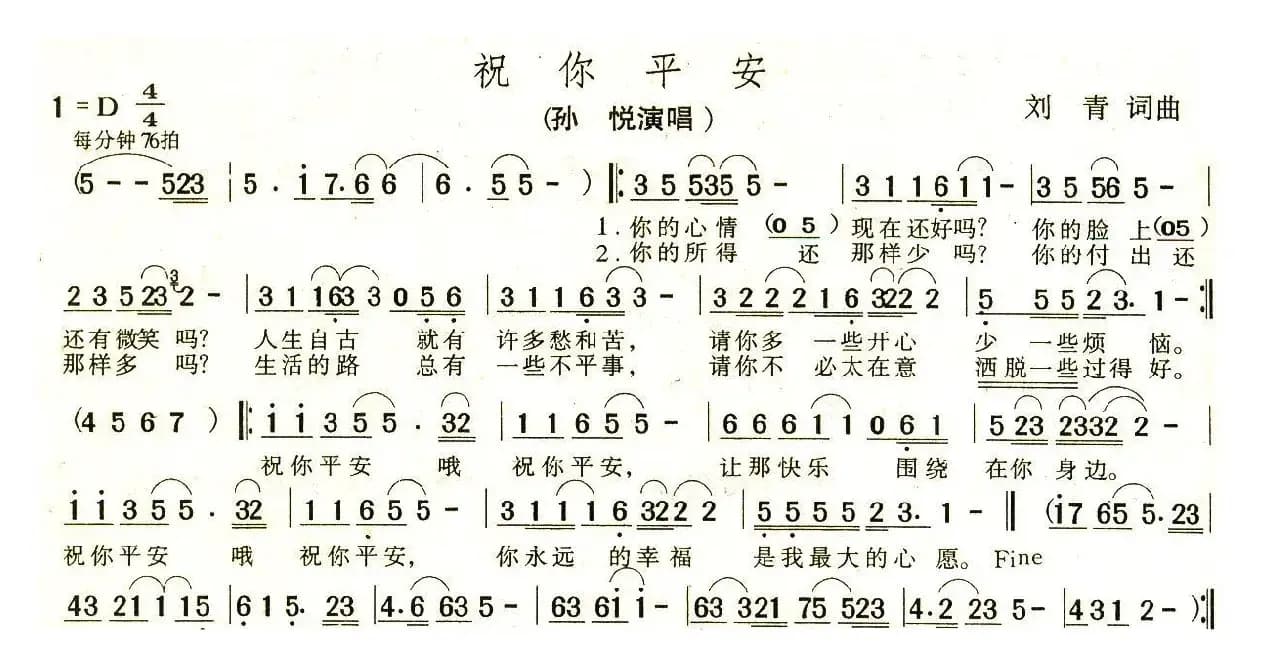 祝 你 平 安
1 = D 4/4
(孙 悦演唱)
刘 青 词曲
每分钟 76拍
(5 - - 523 | 5 · i 7· 6 6 | 6 · 5 5 - ) ‖: 3 5 535 5 - | 3 1 1 6 1 1 - | 3 5 56 5 - |
1. 你的心情 (0 5) 现在还好吗? 你的脸 上(05)
2. 你的所得 还 那样少 吗? 你的付 出 还
2 3 5 23 2 - | 3 1 163 3 0 5 6 | 3 1 1 6 3 3 - | 3 2 2 2 1 6 322 2 | 5 5 5 2 3· 1 - :‖
还有微笑 吗? 人生自古 就有 许多愁和苦, 请你多 一些开心 少 一些烦 恼。
那样多 吗? 生活的路 总有 一些不平事, 请你不 必太在意 洒脱一些过得 好。
(4 5 6 7 ) ‖: i i 3 5 5 · 32 | 1 1 6 5 5 - | 6 6 6 1 1 0 6 1 | 5 23 2332 2 - |
祝你平安 哦 祝你平安, 让那快乐 围绕 在你 身边。
i i 3 5 5 · 32 | 1 1 6 5 5 - | 3 1 1 1 6 322 2 | 5 5 5 5 2 3· 1 - ‖ (i7 65 5· 23 |
祝你平安 哦 祝你平安, 你永远 的幸福 是我最大的心 愿。Fine
43 21 1 15 | 6 1 5· 23 | 4· 6 63 5 - | 63 61 i - | 63 321 75 523 | 4· 2 23 5 - | 431 2 - ) :‖